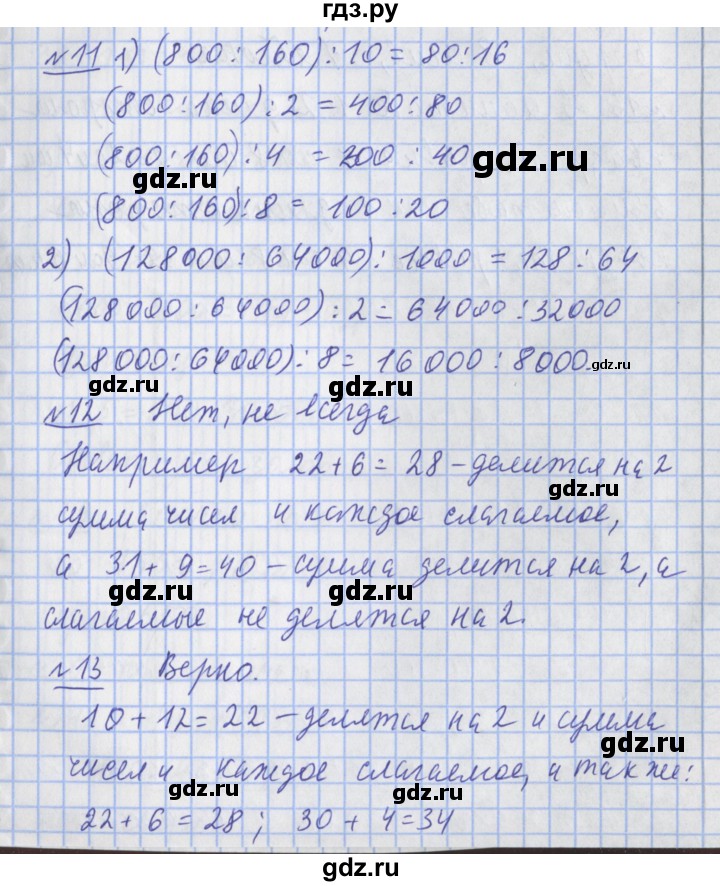 гдз.ру
№11 1) (800:160):10 = 80:16
(800:160):2 = 400:80
(800:160):4 = 200:40
gdz.ru
gdz.ru
(800:160):8 = 100:20
gdz.ru
2) (128000:64000):1000 = 128:64
gdz.ru
gdz.ru
(128000:64000):2 = 64000:32000
(128000:64000):8 = 16000:8000
gdz.ru
gdz.ru
gdz.ru
№12 Нет, не всегда
Например 22+6=28 – делится на 2
gdz.ru
сумма чисел и каждое слагаемое,
а 31+9=40 – сумма делится на 2, а
gdz.ru
gdz.ru
слагаемые не делятся на 2.
№13 Верно.
10+12=22 – делятся на 2 и сумма
gdz.ru
чисел и каждое слагаемое, а также:
gdz.ru
gdz.ru
22+6=28; 30+4=34
gdz.ru